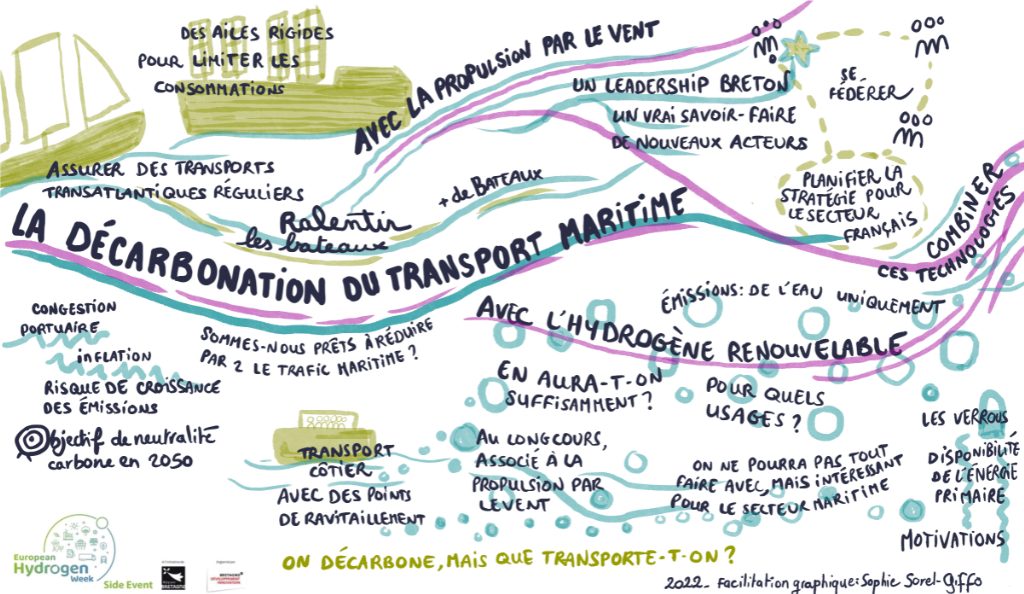 DES AILES RIGIDES
POUR LIMITER LES
CONSOMMATIONS
AVEC LA PROPULSION PAR LE VENT
UN LEADERSHIP BRETON
UN VRAI SAVOIR-FAIRE
DE NOUVEAUX ACTEURS
SE
FÉDÉRER
PLANIFIER LA
STRATÉGIE POUR
LE SECTEUR
FRANÇAIS
ASSURER DES TRANSPORTS
TRANSATLANTIQUES RÉGULIERS
Ralentir
les bateaux
+ de BATEAUX
COMBINER
CES TECHNOLOGIES
LA DÉCARBONATION DU TRANSPORT MARITIME
CONGESTION
PORTUAIRE
INFLATION
RISQUE DE CROISSANCE
DES ÉMISSIONS
Objectif de neutralité
carbone en 2050
SOMMES-NOUS PRÊTS À RÉDUIRE
PAR 2 LE TRAFIC MARITIME ?
AVEC L'HYDROGÈNE RENOUVELABLE
ÉMISSIONS: DE L'EAU UNIQUEMENT
EN AURA-T-ON
SUFFISAMMENT ?
POUR QUELS
USAGES ?
TRANSPORT
CÔTIER
AVEC DES POINTS
DE RAVITAILLEMENT
AU LONG COURS,
ASSOCIÉ À LA
PROPULSION PAR
LE VENT
ON NE POURRA PAS TOUT
FAIRE AVEC, MAIS INTÉRESSANT
POUR LE SECTEUR MARITIME
LES VERROUS
DISPONIBILITÉ
DE L'ÉNERGIE
PRIMAIRE
MOTIVATIONS
ON DÉCARBONE, MAIS QUE TRANSPORTE-T-ON ?
European
Hydrogen
Week
Side Event
BRETAGNE
BRETAGNE
DÉVELOPPEMENT
INNOVATION
2022_ Facilitation graphique: Sophie Sorel-Giffo